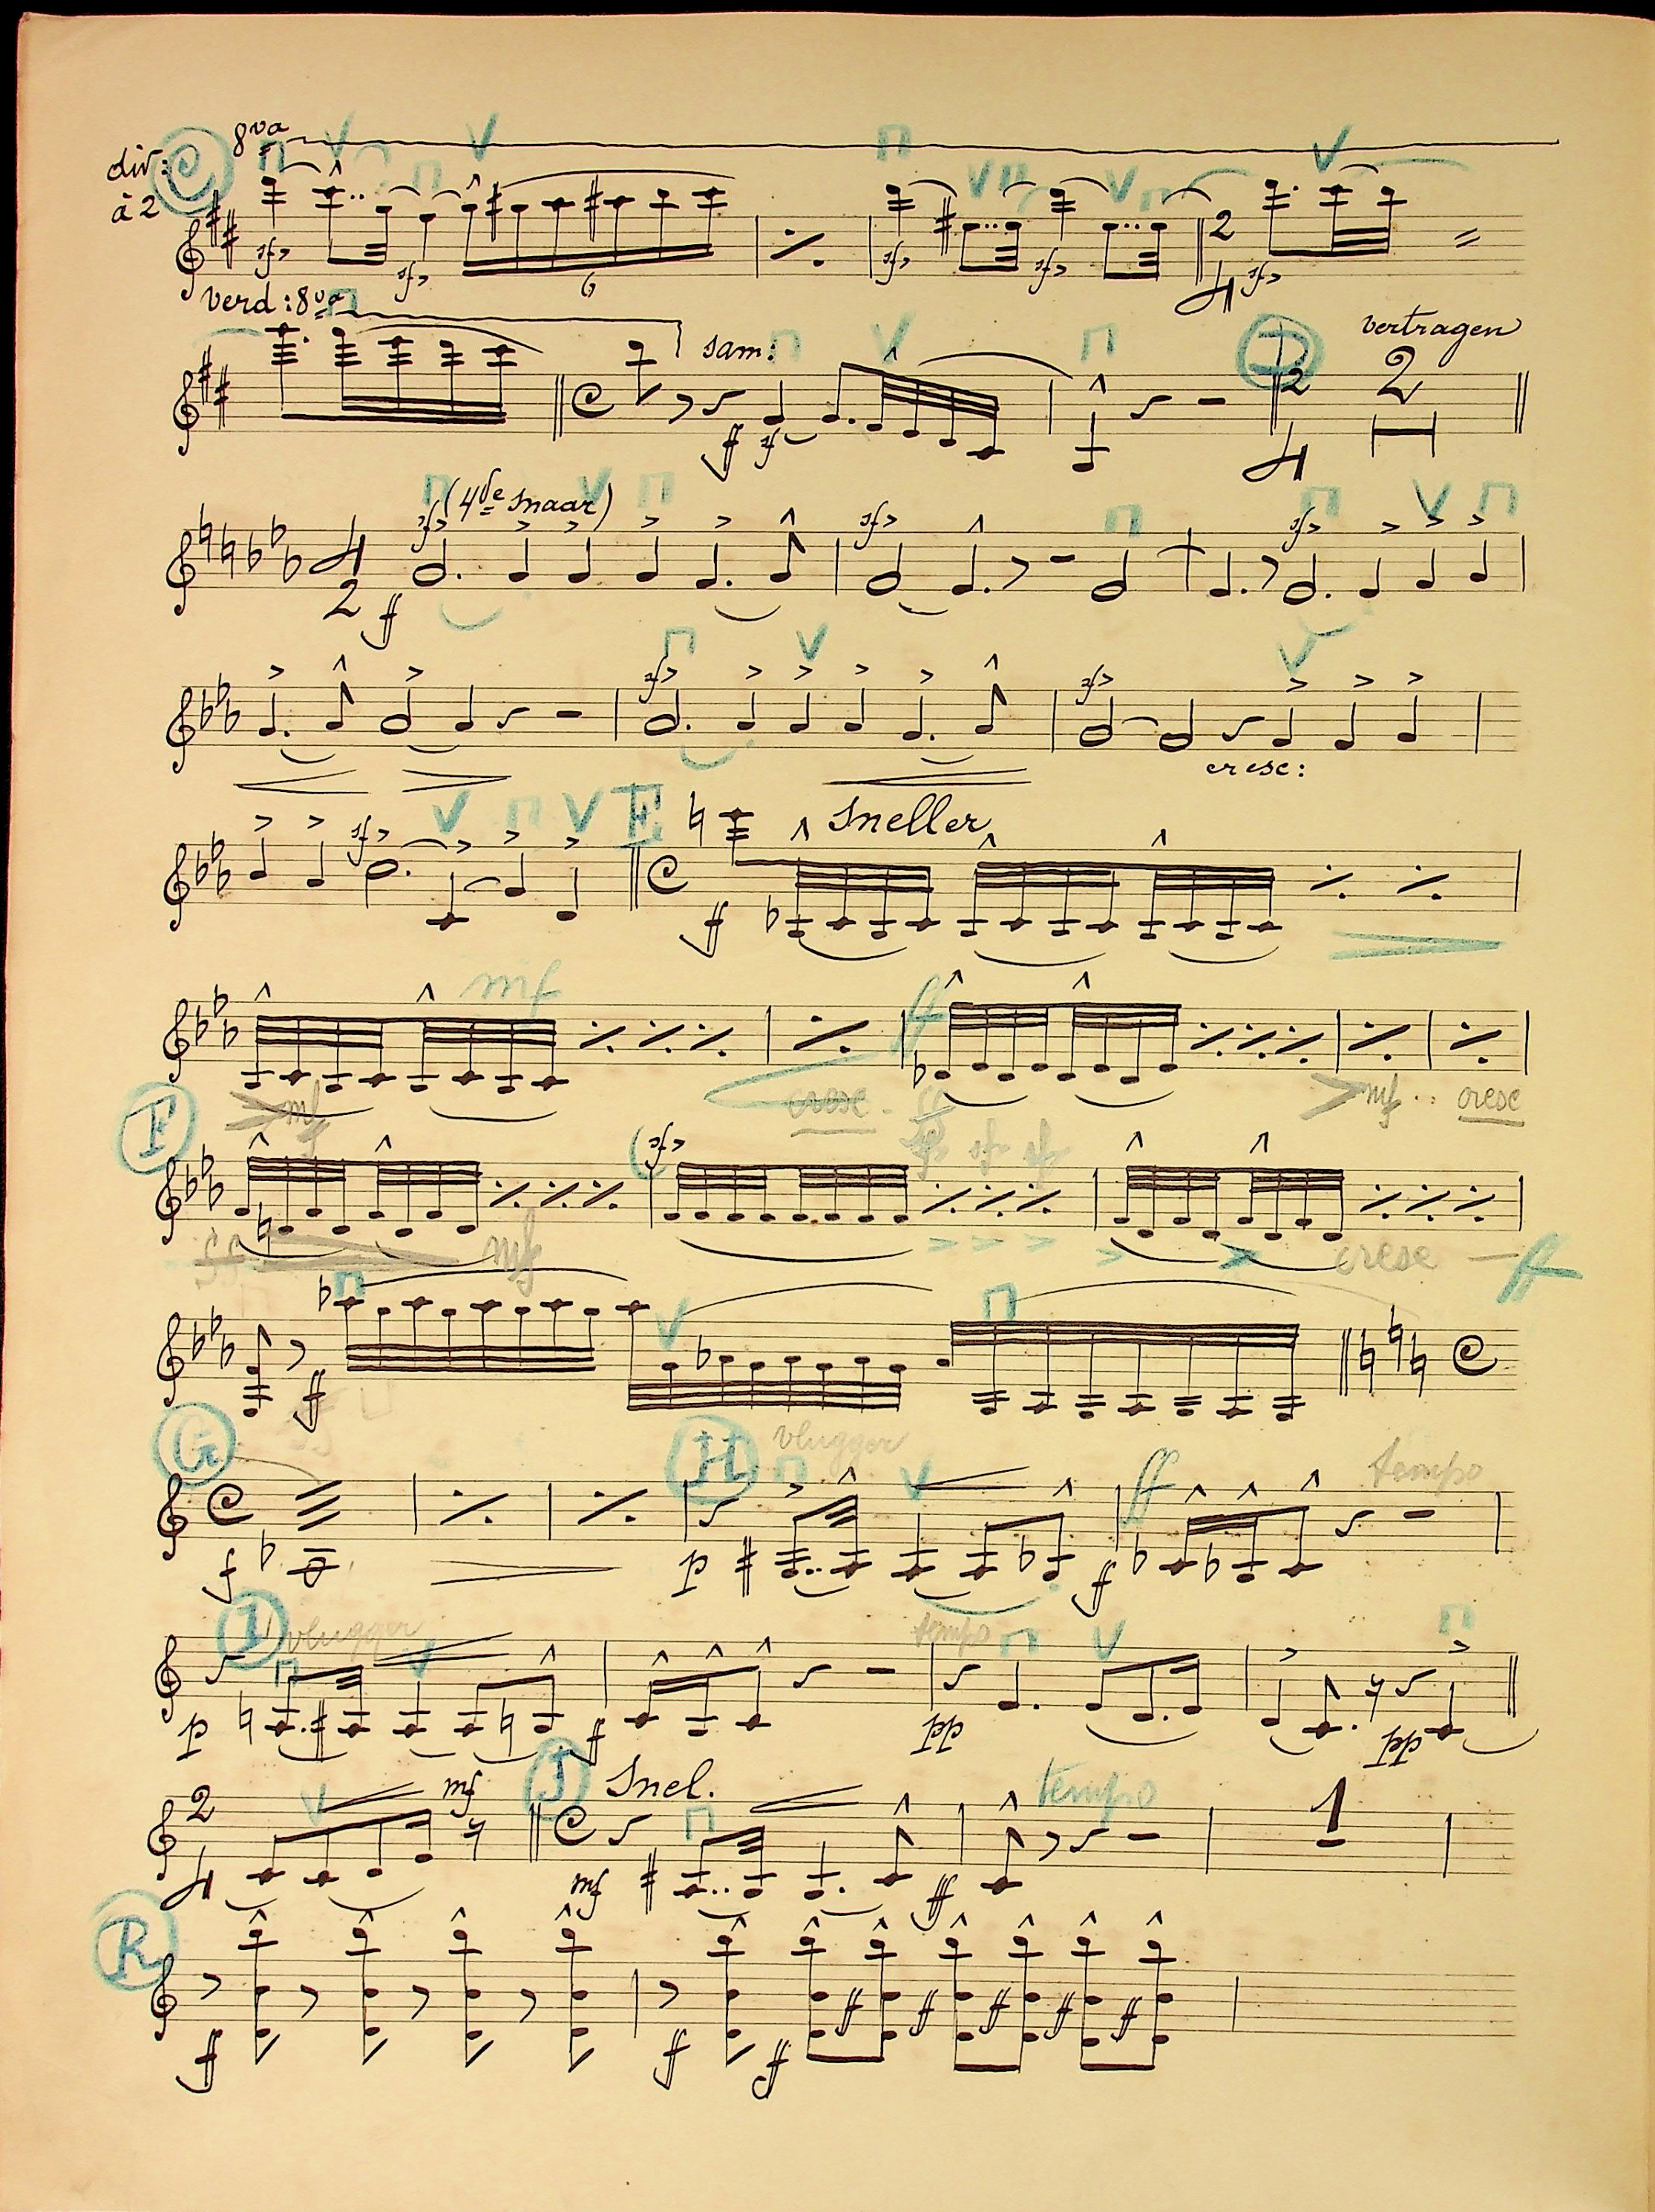 div: C 8va
à 2
sf> sf> 6 sf> sf> 2 4 sf>
verd: 8va sam: D vertragen
ff sf 2 4 2
(4de snaar)
sf> sf> sf>
4 2 ff
sf> sf>
cresc:
sf> E sneller
ff
mf ff
mf cresc. mf.. cresc
F sf> sf sf sf
ff mf cresc - ff
ff
G H vlugger ff tempo
f p f
I vlugger tempo
p f pp pp
2 4 mf J Snel. tempo 1
mf ff
R
ff ff ff ff ff ff ff ff